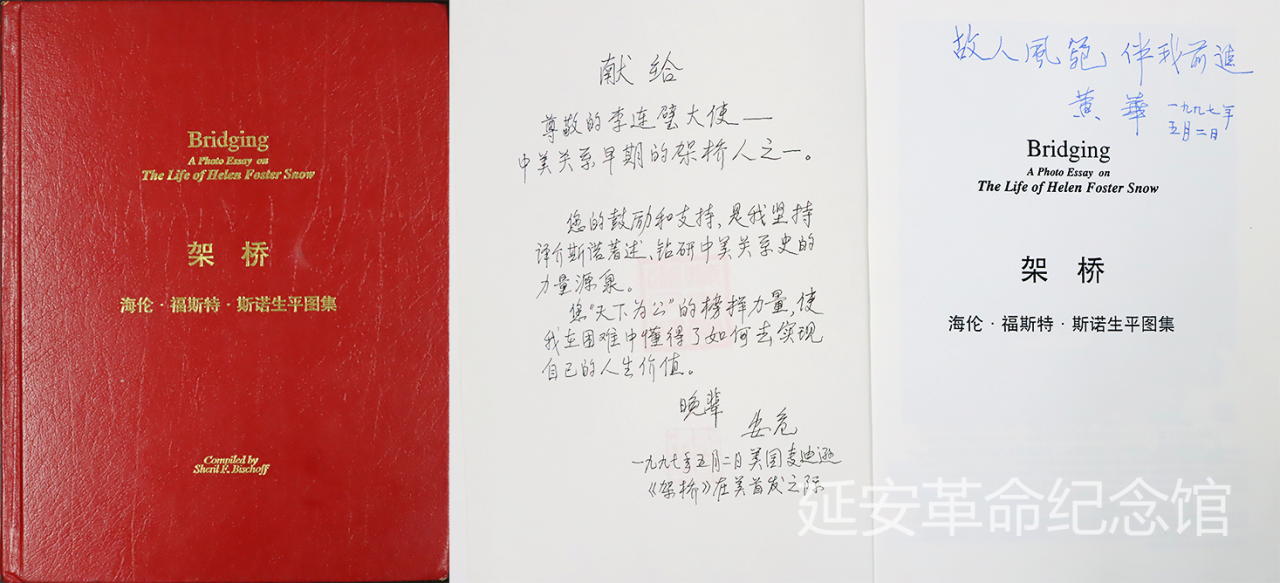 Bridging
A Photo Essay on
The Life of Helen Foster Snow
架 桥
海伦·福斯特·斯诺生平图集
Compiled by
Sheril F. Bischoff
献给
尊敬的李连璧大使——
中美关系早期的架桥人之一。
您的鼓励和支持,是我坚持
译介斯诺著述、钻研中美关系史的
力量源泉。
您“天下为公”的榜样力量,使
我在困难中懂得了如何去实现
自己的人生价值。
晚辈
安危
一九九七年五月二日美国麦迪逊
《架桥》在美首发之际
故人風範 伴我前进
黄華 一九九七年
五月二日
Bridging
A Photo Essay on
The Life of Helen Foster Snow
架 桥
海伦·福斯特·斯诺生平图集
延安革命纪念馆